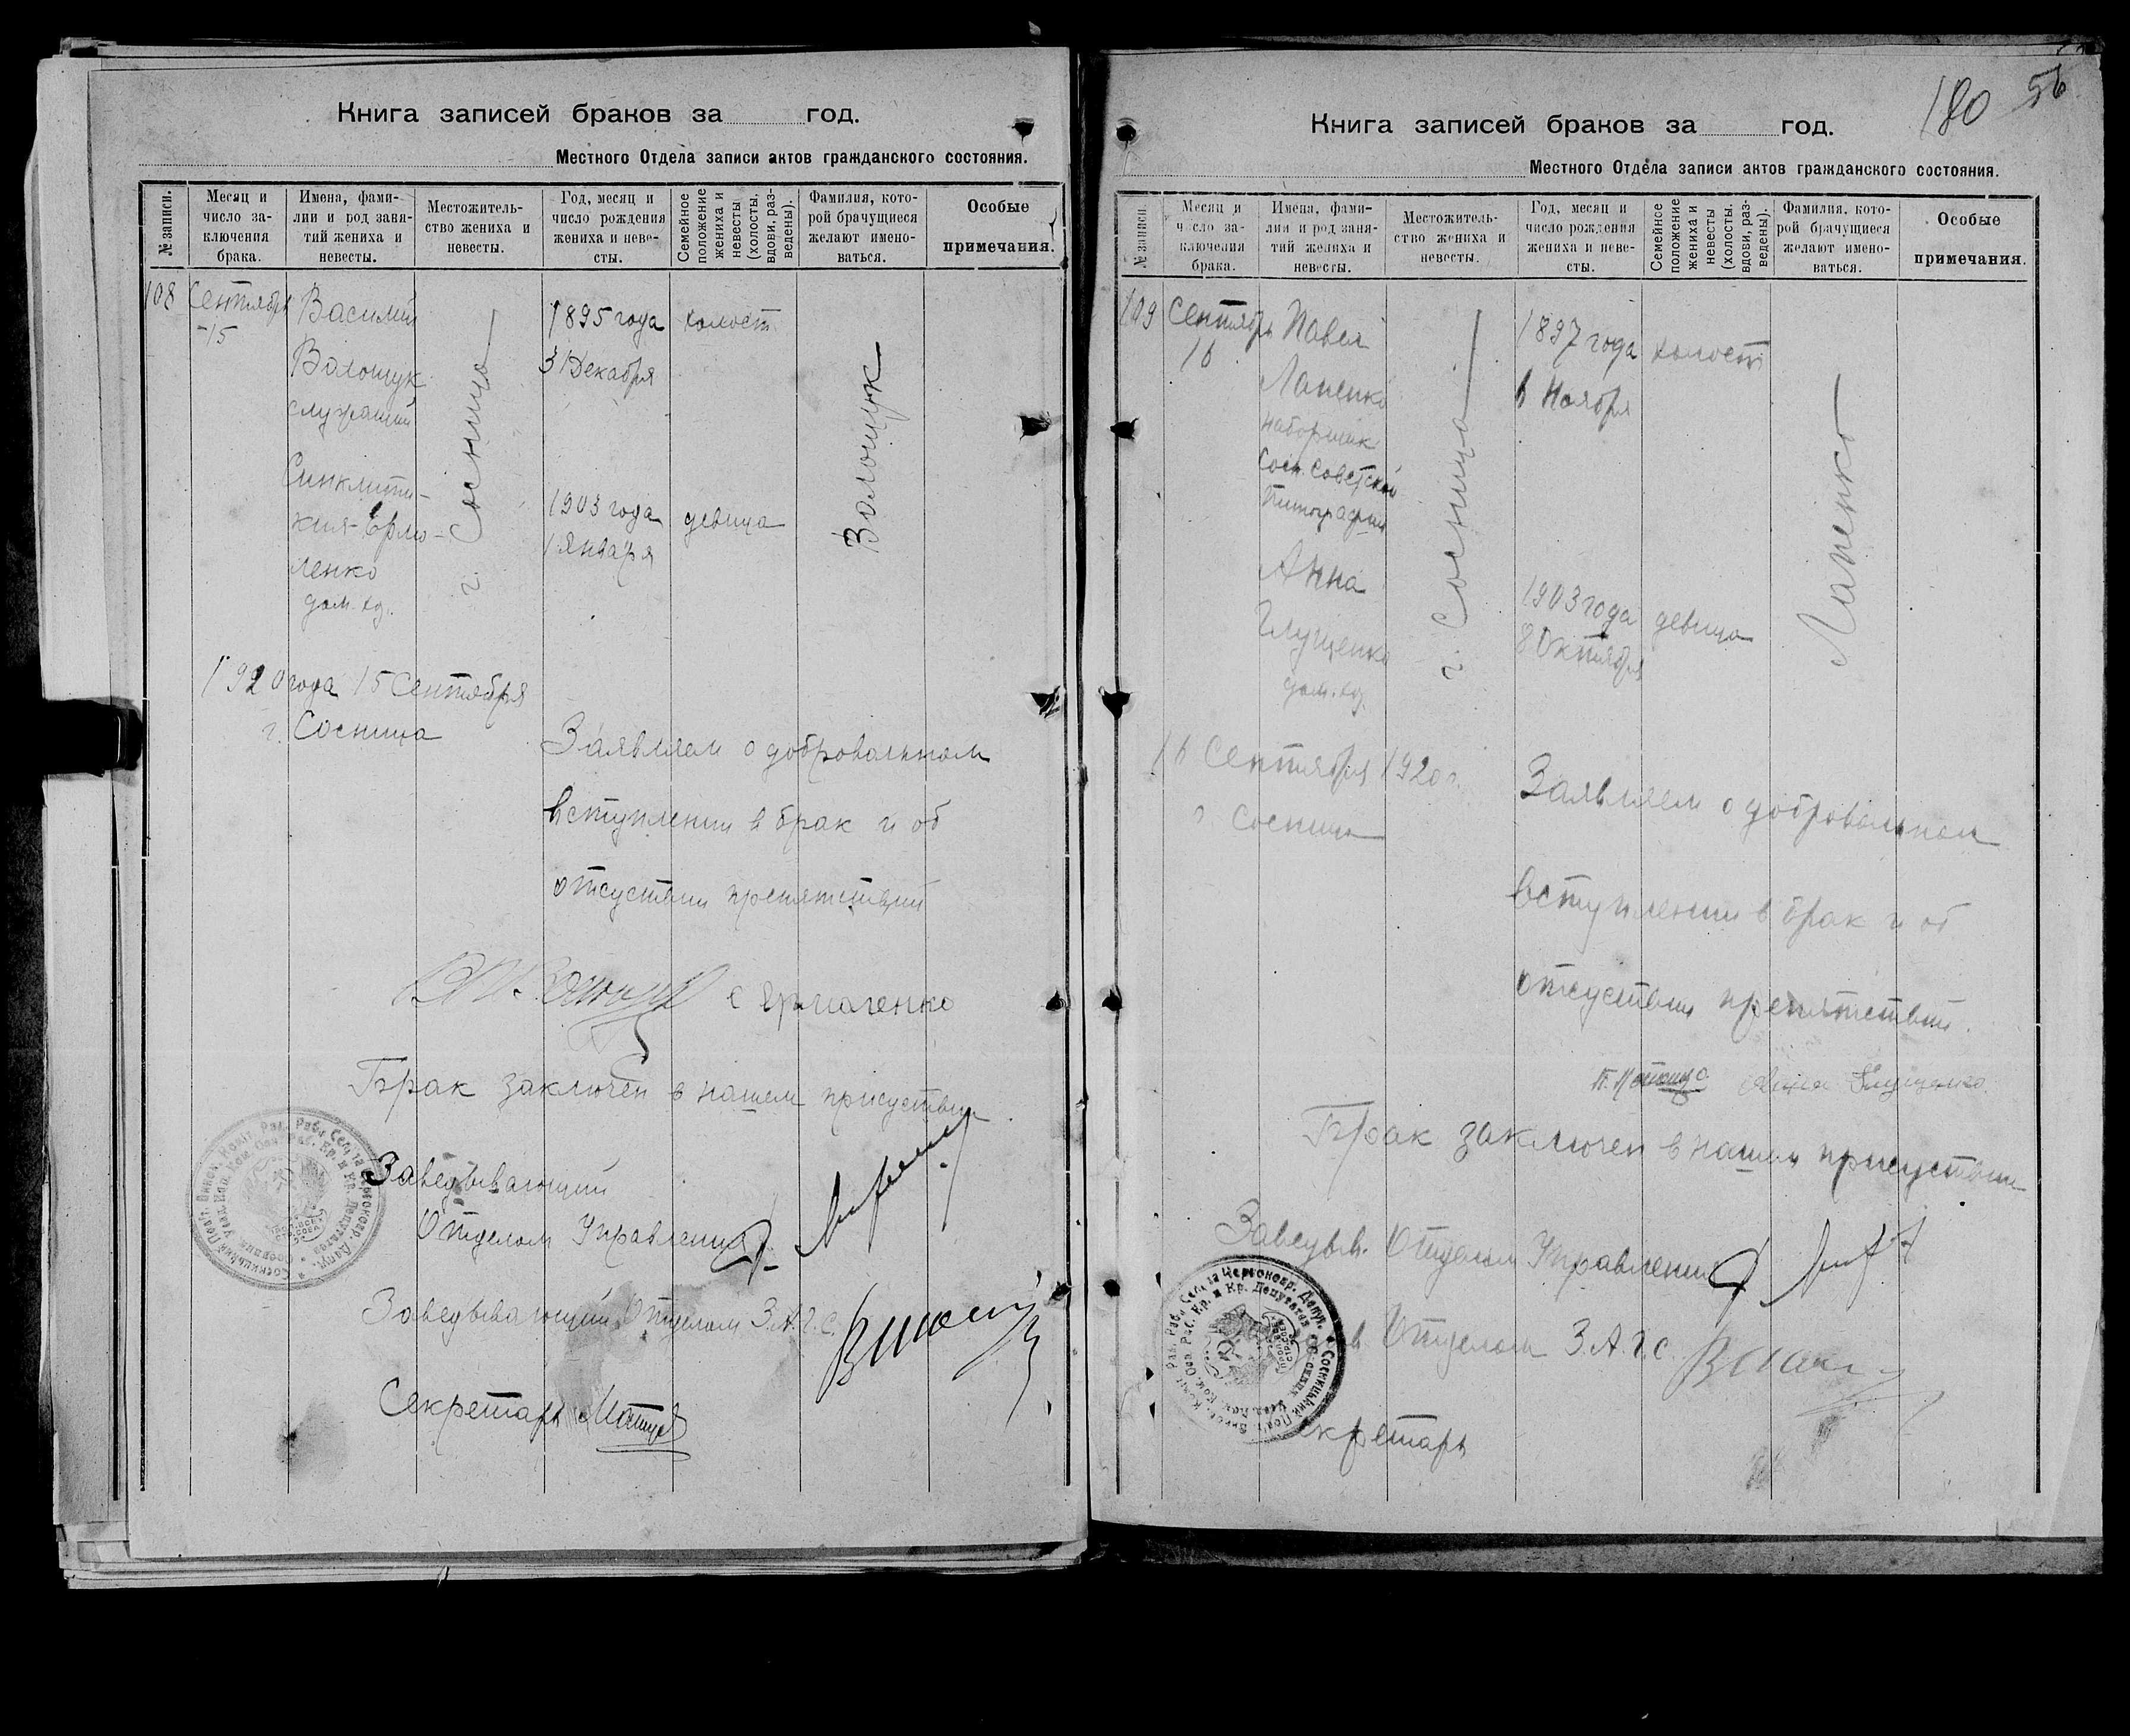 Книга записей браков за год.
Местного Отдела записи актов гражданского состояния.
№ записи.
Месяц и
число за-
ключения
брака.
Имена, фами-
лии и род заня-
тий жениха и
невесты.
Местожитель-
ство жениха и
невесты.
Год, месяц и
число рождения
жениха и неве-
сты.
Семейное
положение
жениха и
невесты
(холосты,
вдовы, раз-
ведены).
Фамилия, кото-
рой брачущиеся
желают имено-
ваться.
Особые
примечания.
108
Сентября
-15
Василий
Волощук
служащий
Синклити-
кия Ермо-
ленко
дом. хоз.
г. Сосница
1895 года
31 Декабря
холост
1903 года
1 Января
девица
Волощук
1920 года 15 Сентября
г. Сосница
Заявляем о добровольном
вступлении в брак и об
отсуствии препятствий
С Ермоленко
Брак заключен в нашем присуствии
Заведывающий
Отделом Управления
Заведывающий Отделом З.А.Г.С.
Секретарь
180 56
Книга записей браков за год.
Местного Отдела записи актов гражданского состояния.
№ записи.
Месяц и
число за-
ключения
брака.
Имена, фами-
лии и род заня-
тий жениха и
невесты.
Местожитель-
ство жениха и
невесты.
Год, месяц и
число рождения
жениха и неве-
сты.
Семейное
положение
жениха и
невесты
(холосты,
вдовы, раз-
ведены).
Фамилия, кото-
рой брачущиеся
желают имено-
ваться.
Особые
примечания.
109
Сентября
16
Павел
Лапенко
наборщик
Сосн. Советской
Типографии
Анна
Глущенко
дом. хоз.
г. Сосница
1897 года
6 Ноября
холост
1903 года
8 Октября
девица
Лапенко
16 Сентября 1920 г.
г Сосница
Заявляем о добровольном
вступлении в брак и об
отсуствии препятствий.
Анна Глущенко
Брак заключен в нашем присуствии
Заведыв. Отделом Управления
Отделом З.А.Г.С.
екретарь